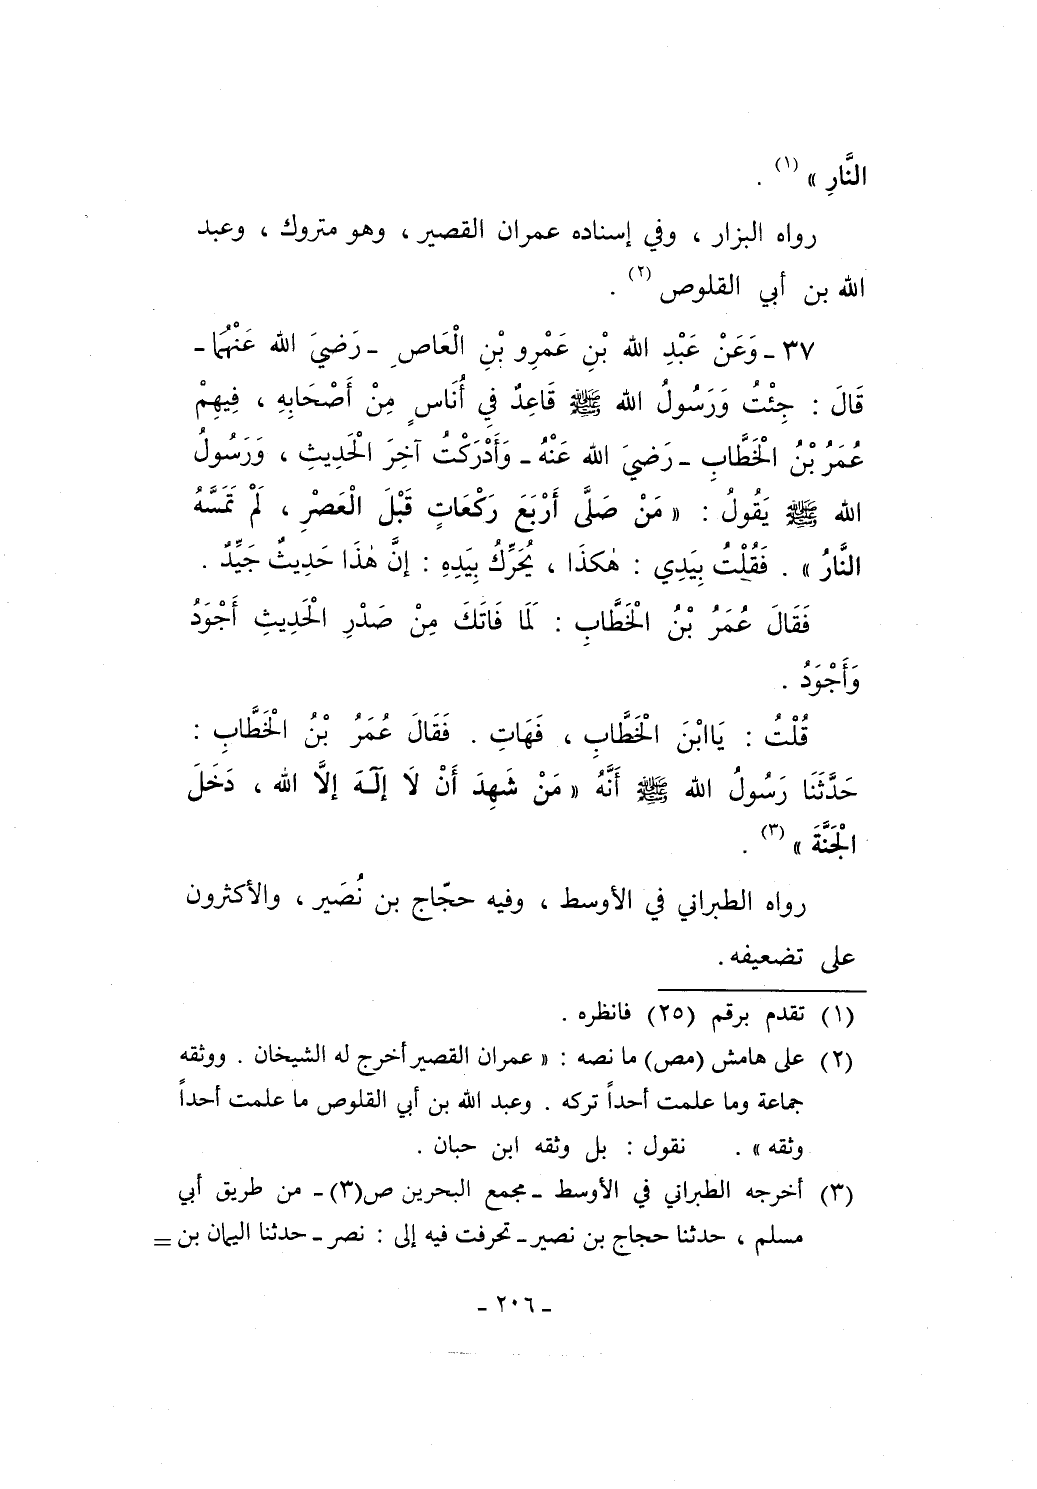 النَّارِ » (١) .
رواه البزار ، وفي إسناده عمران القصير ، وهو متروك ، وعبد
الله بن أبي القلوص (٢) .
٣٧ ـ وَعَنْ عَبْدِ الله بْنِ عَمْرِو بْنِ الْعَاصِ ـ رَضيَ الله عَنْهُمَا ـ
قَالَ : جِئْتُ وَرَسُولُ الله ﷺ قَاعِدٌ فِي أُنَاسٍ مِنْ أَصْحَابِهِ ، فِيهِمْ
عُمَرُ بْنُ الْخَطَّابِ ـ رَضيَ الله عَنْهُ ـ وَأَدْرَكْتُ آخِرَ الْحَدِيثِ ، وَرَسُولُ
الله ﷺ يَقُولُ : « مَنْ صَلَّى أَرْبَعَ رَكَعَاتٍ قَبْلَ الْعَصْرِ ، لَمْ تَمَسَّهُ
النَّارُ » . فَقُلْتُ بِيَدِي : هٰكَذَا ، يُحَرِّكُ بِيَدِهِ : إنَّ هٰذَا حَدِيثٌ جَيِّدٌ .
فَقَالَ عُمَرُ بْنُ الْخَطَّابِ : لَمَا فَاتَكَ مِنْ صَدْرِ الْحَدِيثِ أَجْوَدُ
وَأَجْوَدُ .
قُلْتُ : يَاابْنَ الْخَطَّابِ ، فَهَاتِ . فَقَالَ عُمَرُ بْنُ الْخَطَّابِ :
حَدَّثَنَا رَسُولُ الله ﷺ أَنَّهُ « مَنْ شَهِدَ أَنْ لَا إلَـهَ إلَّا الله ، دَخَلَ
الْجَنَّةَ » (٣) .
رواه الطبراني في الأوسط ، وفيه حجّاج بن نُصَير ، والأكثرون
على تضعيفه .
(١) تقدم برقم (٢٥) فانظره .
(٢) على هامش (مص) ما نصه : « عمران القصير أخرج له الشيخان . ووثقه
جماعة وما علمت أحداً تركه . وعبد الله بن أبي القلوص ما علمت أحداً
وثقه » . نقول : بل وثقه ابن حبان .
(٣) أخرجه الطبراني في الأوسط ـ مجمع البحرين ص(٣) ـ من طريق أبي
مسلم ، حدثنا حجاج بن نصير ـ تحرفت فيه إلى : نصر ـ حدثنا اليمان بن =
ـ ٢٠٦ ـ